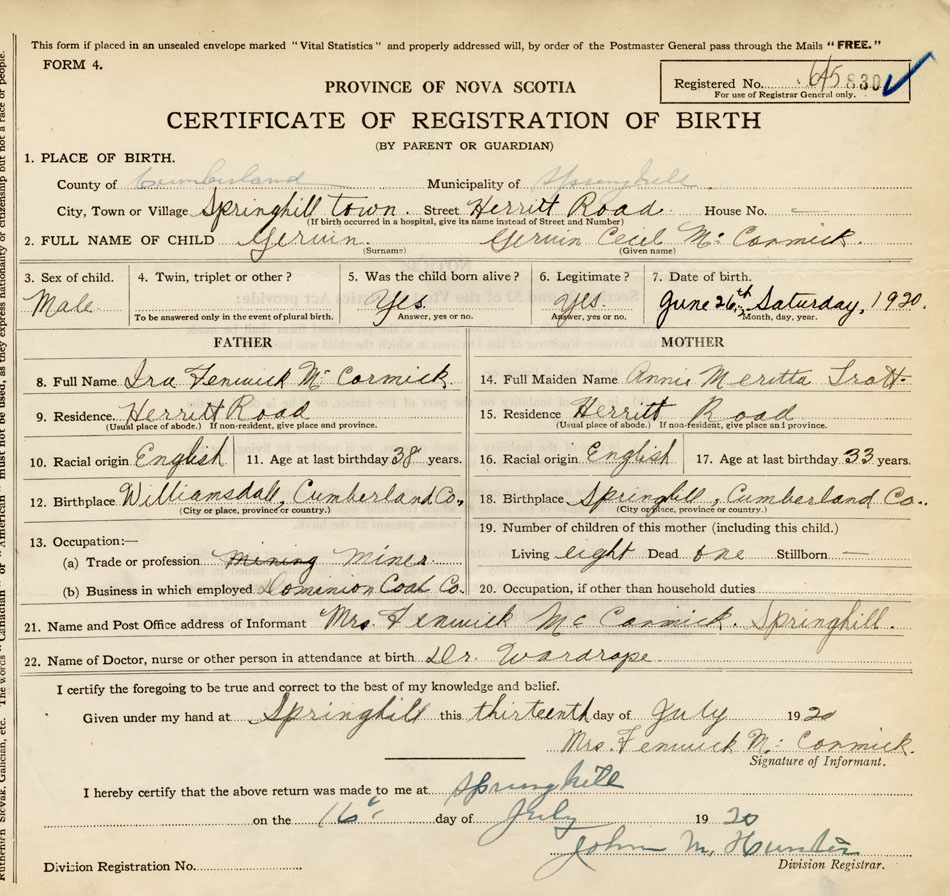 This form if placed in an unsealed envelope marked "Vital Statistics" and properly addressed will, by order of the Postmaster General pass through the Mails "FREE."
FORM 4.
Registered No. 645830
For use of Registrar General only.
PROVINCE OF NOVA SCOTIA
CERTIFICATE OF REGISTRATION OF BIRTH
(BY PARENT OR GUARDIAN)
1. PLACE OF BIRTH.
County of Cumberland Municipality of Springhill
City, Town or Village Springhill Town. Street Herritt Road House No. —
(If birth occurred in a hospital, give its name instead of Street and Number)
2. FULL NAME OF CHILD Gervin. Gervin Cecil Mc Cormick.
(Surname) (Given name)
3. Sex of child. 4. Twin, triplet or other? 5. Was the child born alive? 6. Legitimate? 7. Date of birth.
Male Yes. yes. June 26th, Saturday, 1920.
To be answered only in the event of plural birth. Answer, yes or no. Answer, yes or no. Month, day, year.
FATHER MOTHER
8. Full Name Ira Fenwick Mc Cormick. 14. Full Maiden Name Annie Meritta Trott.
9. Residence. Herritt Road 15. Residence Herritt Road
(Usual place of abode.) If non-resident, give place and province. (Usual place of abode.) If non-resident, give place and province.
10. Racial origin English 11. Age at last birthday 38 years. 16. Racial origin English 17. Age at last birthday 33 years.
12. Birthplace Williamsdall, Cumberland Co., 18. Birthplace Springhill, Cumberland Co..
(City or place, province or country.) (City or place, province or country.)
13. Occupation:— 19. Number of children of this mother (including this child.)
(a) Trade or profession mining Miner Living eight Dead one Stillborn —
(b) Business in which employed Dominion Coal Co. 20. Occupation, if other than household duties
21. Name and Post Office address of Informant Mrs. Fenwick Mc Cormick. Springhill.
22. Name of Doctor, nurse or other person in attendance at birth Dr. Wardrope
I certify the foregoing to be true and correct to the best of my knowledge and belief.
Given under my hand at Springhill this thirteenth day of July 1920
Mrs. Fenwick Mc Cormick.
Signature of Informant.
I hereby certify that the above return was made to me at Springhill
on the 16 day of July 1920
John M. Hunter
Division Registration No. Division Registrar.
Ruthenian Slovak, Galician, etc. The words "Canadian" or "American" must not be used, as they express nationality or citizenship but not a race or people.